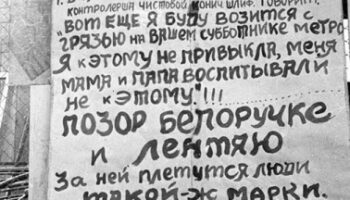 контролерша чистовой конич шлиф. говорит:
"Вот еще я буду возится с
грязью на вашем субботнике метро
Я к этому не привыкла, меня
мама и папа воспитывали
не к этому."!!!
ПОЗОР БЕЛОРУЧКЕ
и ЛЕНТЯЮ
За ней плетутся люди
такой-ж марки.